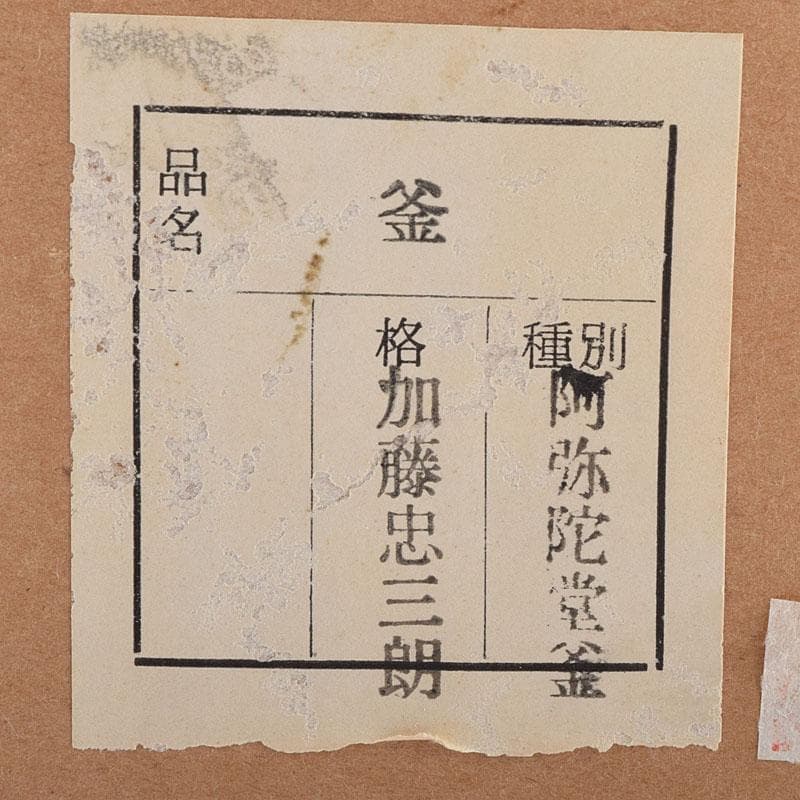 品名
釜
種別
阿弥陀堂釜
格
加藤忠三朗